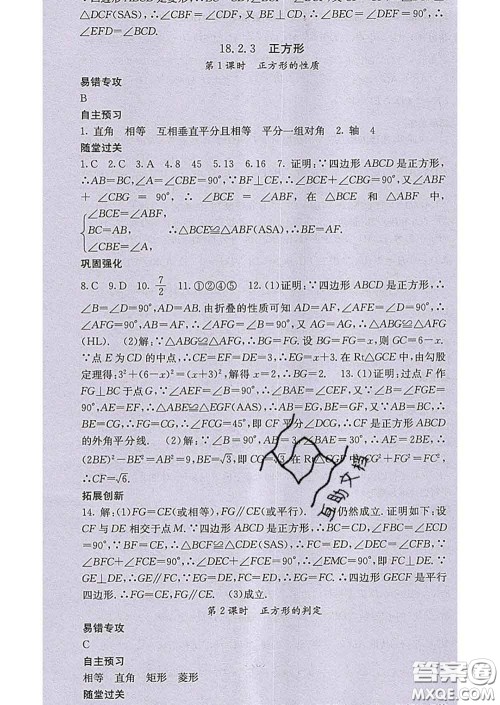 四边形 ABCD 是菱形,∴∠CBF=∠CDF,
△DCF(SAS). ∴∠CBF=∠CDF, 又 BE⊥CD, ∴∠BEC=∠DEF=90°, ∴
∠EFD=∠BCD.
18.2.3 正方形
第1课时 正方形的性质
易错专攻
B
自主预习
1. 直角 相等 互相垂直平分且相等 平分一组对角 2. 轴 4
随堂过关
1.C 2.C 3.A 4.8 45 5.13 6.16 7. 证明:∵四边形 ABCD 是正方形,
∴AB=BC,∠A=∠CBE=90°,∵BF⊥CE,∴∠BCE+∠CBG=90°. 又∠ABF
+∠CBG = 90°, ∴∠BCE = ∠ABF, 在△BCE 和△ABF 中,
∠BCE=∠ABF,
BC=AB, ∴△BCE≌△ABF(ASA),∴BE=AF.
∠CBE=∠A,
巩固强化
8.C 9.D 10. 7/2 11.①②④⑤ 12.(1)证明:∵四边形 ABCD 是正方形,∴
∠B=∠D=90°,AD=AB. 由折叠的性质可知 AD=AF,∠AFE=∠D=90°,∴
∠AFG=90°,AB=AF,∴∠AFG=∠B. 又 AG=AG,∴△ABG≌△AFG
(HL). (2)解:∵△ABG≌△AFG,∴BG=FG. 设 BG=FG=x,则 GC=6−x.
∵点 E 为 CD 的中点,∴CE=EF=DE=3,∴EG=x+3. 在 Rt△GCE 中,由勾股
定理得:3²+(6−x)²=(x+3)²,解得 x=2,∴BG=2. 13.(1)证明:过点 F 作
FG⊥BC 于点 G,∵∠AEF=∠B=90°,∴∠BAE=∠CEF. 又∵∠B=∠FGE=
90°,AE=EF,∴△ABE≌△EGF(AAS),∴AB=EG,BE=GF. 又∵AB=BC,∴
BE=CG,∴FG=CG,∴∠FCG=45°,即 CF 平分∠DCG,∴CF 是正方形 ABCD
的外角平分线. (2)解:∵∠B=90°,AB=3,∠BAE=30°,∴AE=2BE,∴
(2BE)²−BE²=AB²=9,BE=√3,即 CG=√3. 在 Rt△CGF 中,CF²=CG²+FG²,
∴CF=√6.
拓展创新
14. 解:(1)FG=CE(或相等),FG∥CE(或平行). 仍然成立. 证明如下:设
CF 与 DE 相交于点 M. ∵四边形 ABCD 是正方形,∴BC=CD,∠FBC=∠ECD
=90°,∵BF=CE,∴△CBF≌△DCE(SAS),∴CF=DE,∠DEC=∠CFB.
∵∠FCB+∠CFB=90°,∴∠FCB+∠DEC=90°,∴∠EMC=90°,即 FC⊥DE. ∵
GE⊥DE,∴GE∥FC,∵EG=DE,FC=ED,∴EG=FC. ∴四边形 GECF 是平行
四边形. ∴FG=CE,FG∥CE. (3)成立.
第2课时 正方形的判定
易错专攻
C
自主预习
相等 直角 矩形 菱形
随堂过关
互助文档
答案圈
MXQE.COM